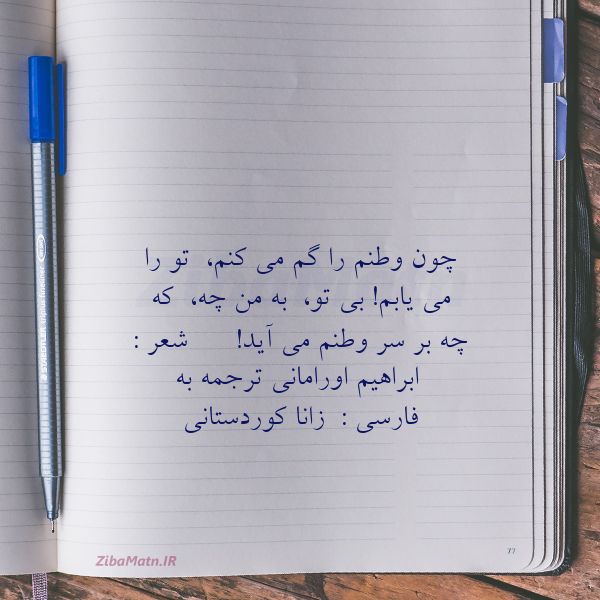 چون وطنم را گم می کنم، تو را
می یابم! بی تو، به من چه، که
چه بر سر وطنم می آید! شعر :
ابراهیم اورامانی ترجمه به
فارسی : زانا کوردستانی
ZibaMatn.IR
77